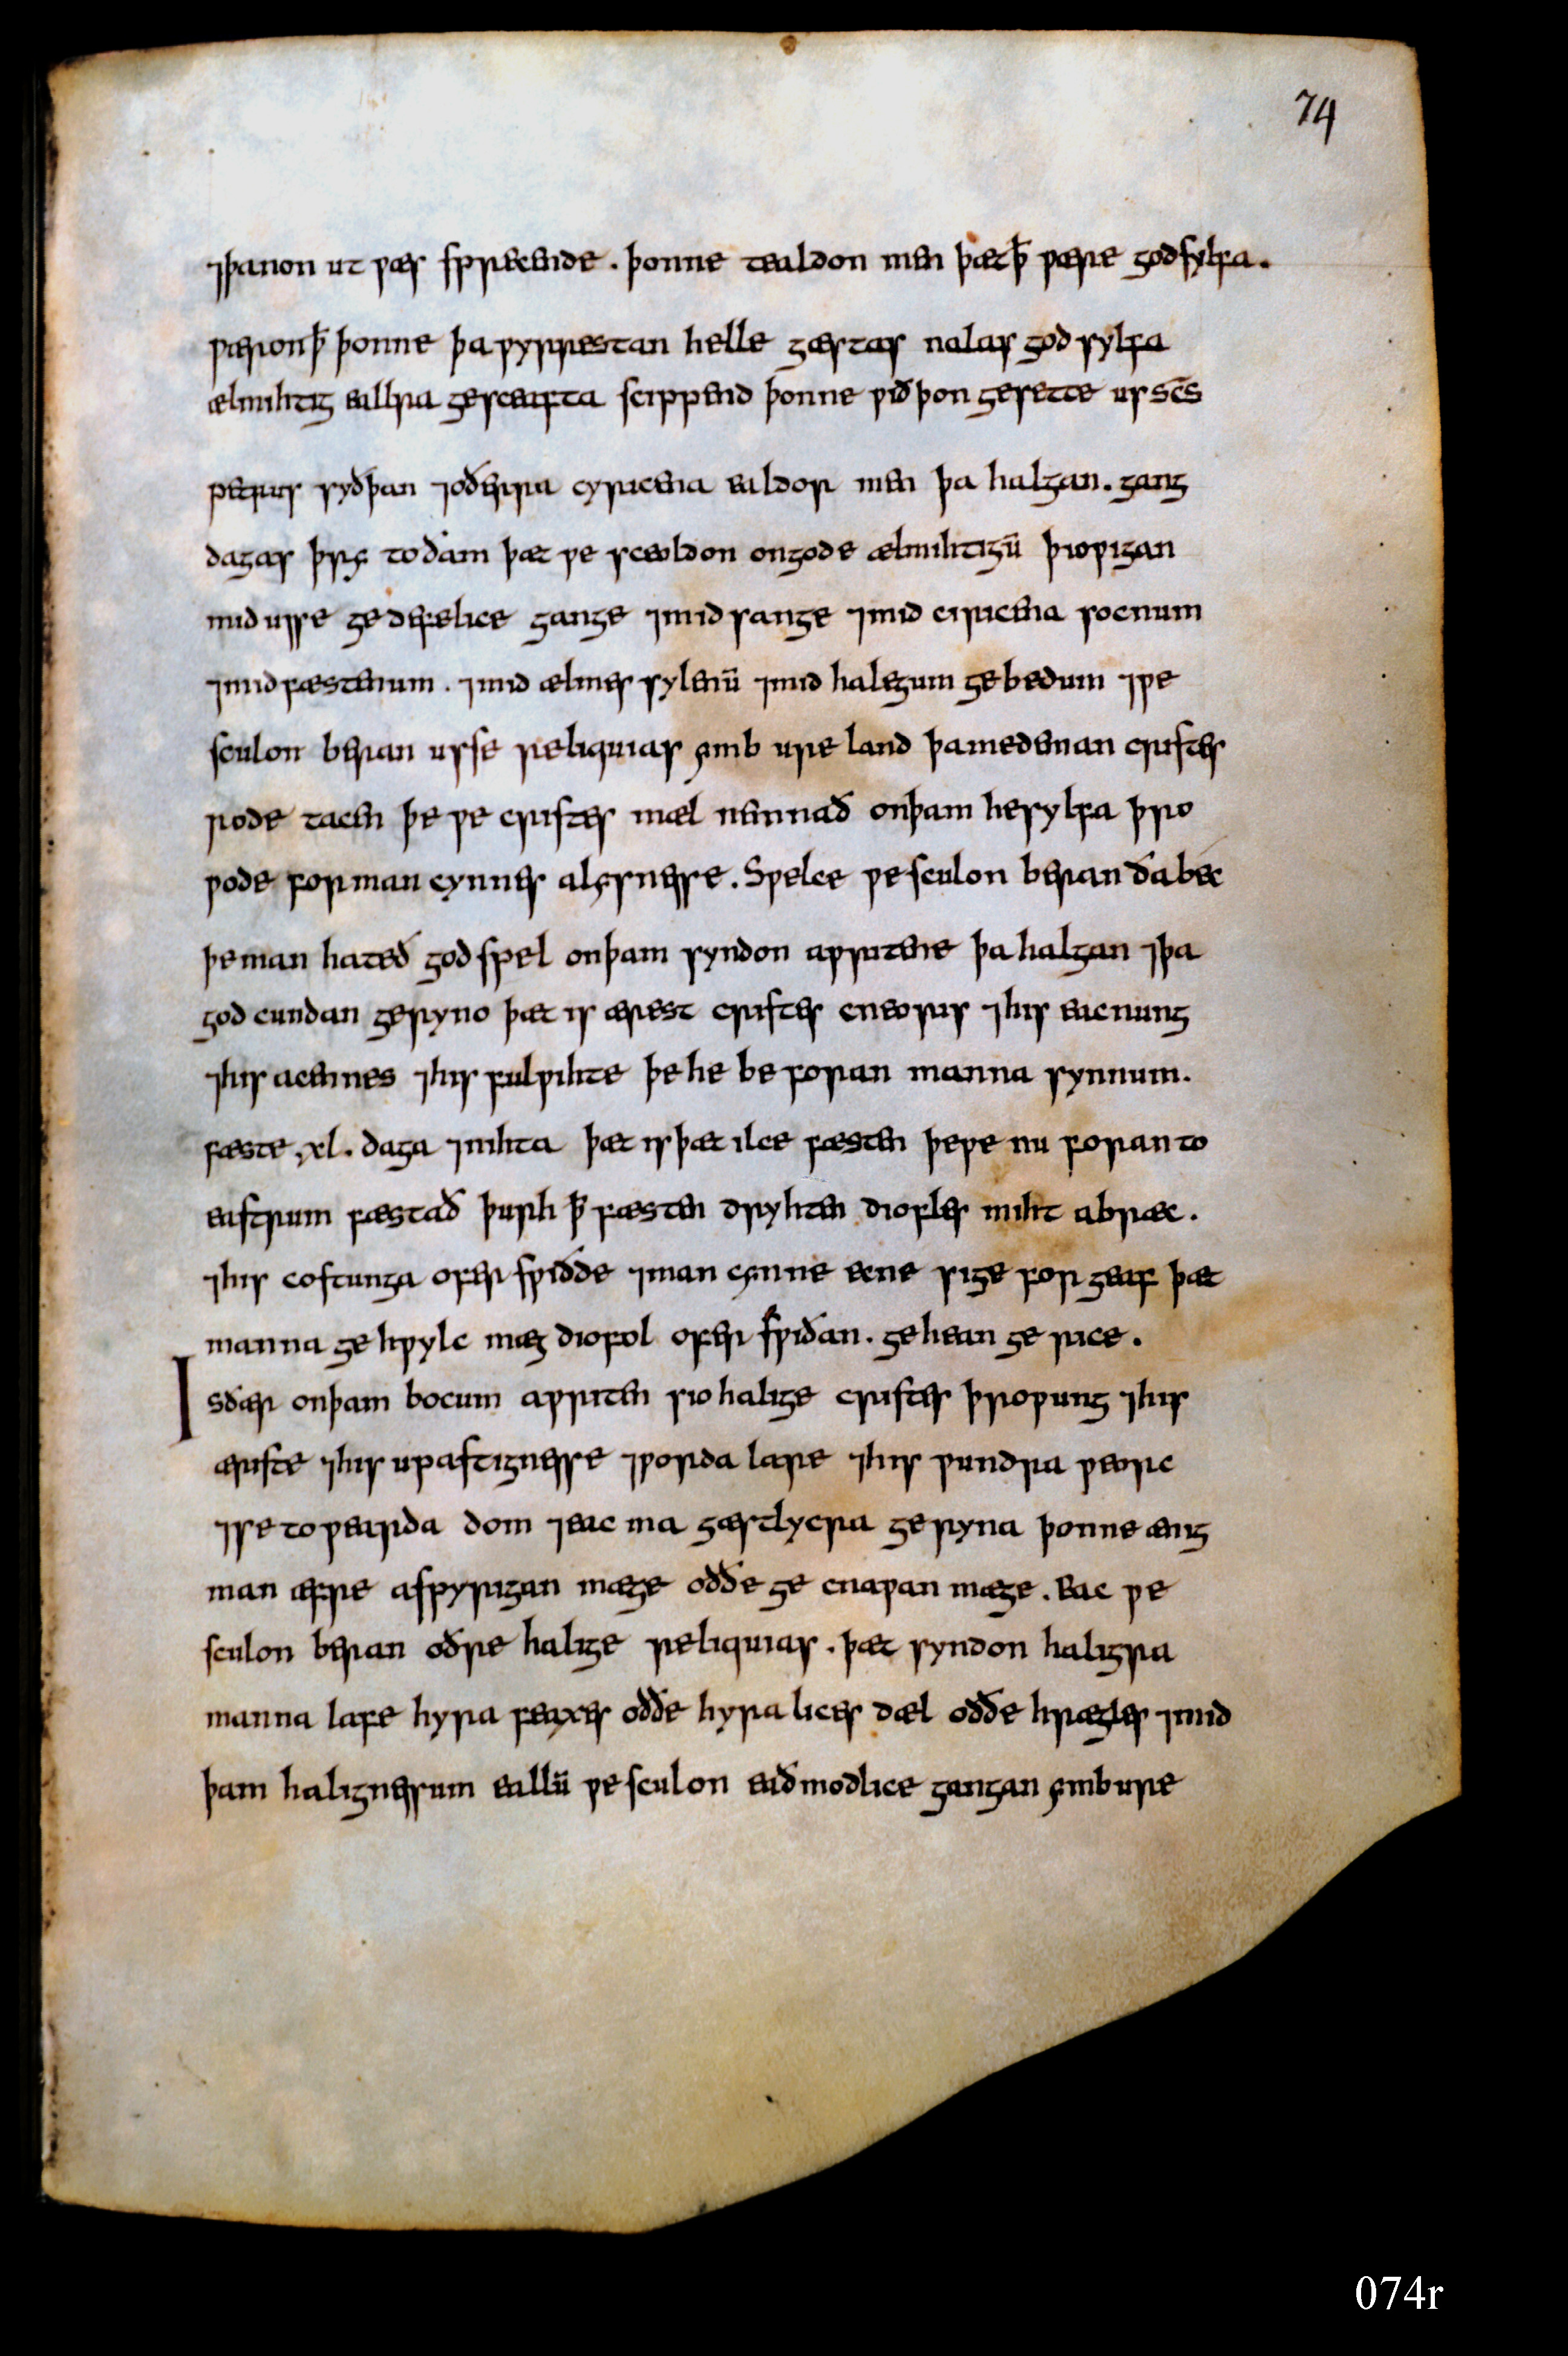 74
⁊þanon ut ƿæs sprecende. þonne tealdon men þæt ꝥ ƿære god sylfa.
ƿæron ꝥ þonne þa ƿyrrestan helle gæstas nalas god sylfa
ælmihtig eallra gesceafta scippend þonne ƿið þon gesette us scs̄
petrus syðþan ⁊oðerra cyricena ealdor men þa halgan. gang
dagas þry to ðam þæt ƿe sceoldon ongode ælmihtigū þioƿigan
mid usse gedefelice gange ⁊mid sange ⁊mid ciricena socnum
⁊mid fæstenum. ⁊mid ælmes sylenū ⁊mid halegum gebedum ⁊ƿe
sculon beran usse reliquias ymb ure land þa medeman cristes
rode tacen þe ƿe cristes mæl nemnað onþam he sylfa þro
ƿode for man cynnes alysnesse. Sƿelce ƿe sculon beran ða bec
þe man hateð god spel onþam syndon aƿritene þa halgan ⁊þa
god cundan geryno þæt is ærest cristes cneorris ⁊his eacnung
⁊his acennes ⁊his fulƿihte þe he be foran manna synnum.
fæste .xl. daga ⁊nihta þæt is þæt ilce fæsten þe ƿe nu foran to
eastrum fæstað þurh ꝥ fæsten dryhten diofles miht abræc.
⁊his costunga ofer sƿiðde ⁊man cynne ecne sige for geaf þæt
manna gehƿylc mæg diofol ofer sƿiðan. ge hean ge rice.
Is ðær onþam bocum aƿriten sio halige cristes þroƿung ⁊his
æriste ⁊his upastignesse ⁊ƿorda lare ⁊his ƿundra ƿeorc
⁊se to ƿearda dom ⁊eac ma gæstlycra geryna þonne ænig
man æfre aspyrigan mæge oððe ge cnaƿan mæge. eac ƿe
sculon beran oðre halige reliquias. þæt syndon haligra
manna lafe hyra feaxes oððe hyra lices dæl oððe hrægles ⁊mid
þam halignessum eallū ƿe sculon eaðmodlice gangan ymb ure
074r